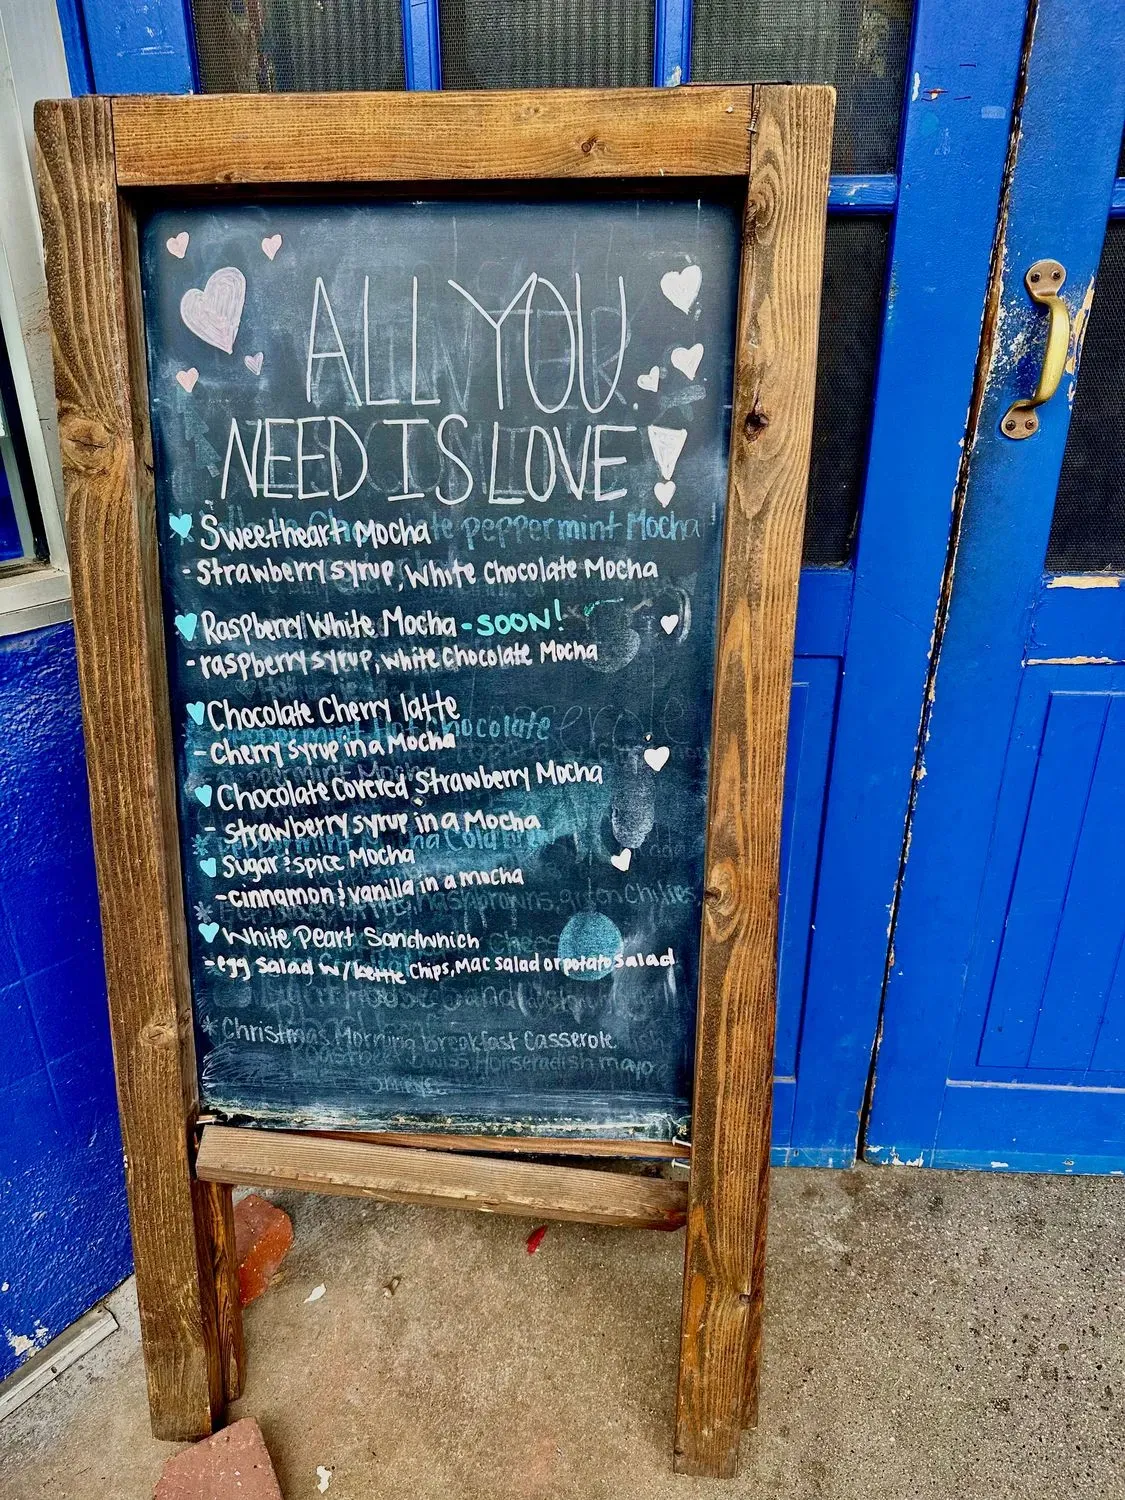 ALL YOU
NEED IS LOVE!
Sweetheart Mocha
peppermint Mocha!
- Strawberry syrup, White Chocolate Mocha
Raspberry White Mocha - SOON!
- raspberry syrup, white chocolate Mocha
Chocolate Cherry latte
Peppermint Hot Chocolate
- Cherry syrup in a Mocha
Chocolate Covered Strawberry Mocha
- strawberry syrup in a Mocha
Sugar & spice Mocha
- cinnamon & vanilla in a mocha
White Peart Sandwhich
- egg salad w/ kettle chips, Mac salad or potato salad
* Christmas Morning breakfast Casserole
horseradish mayo